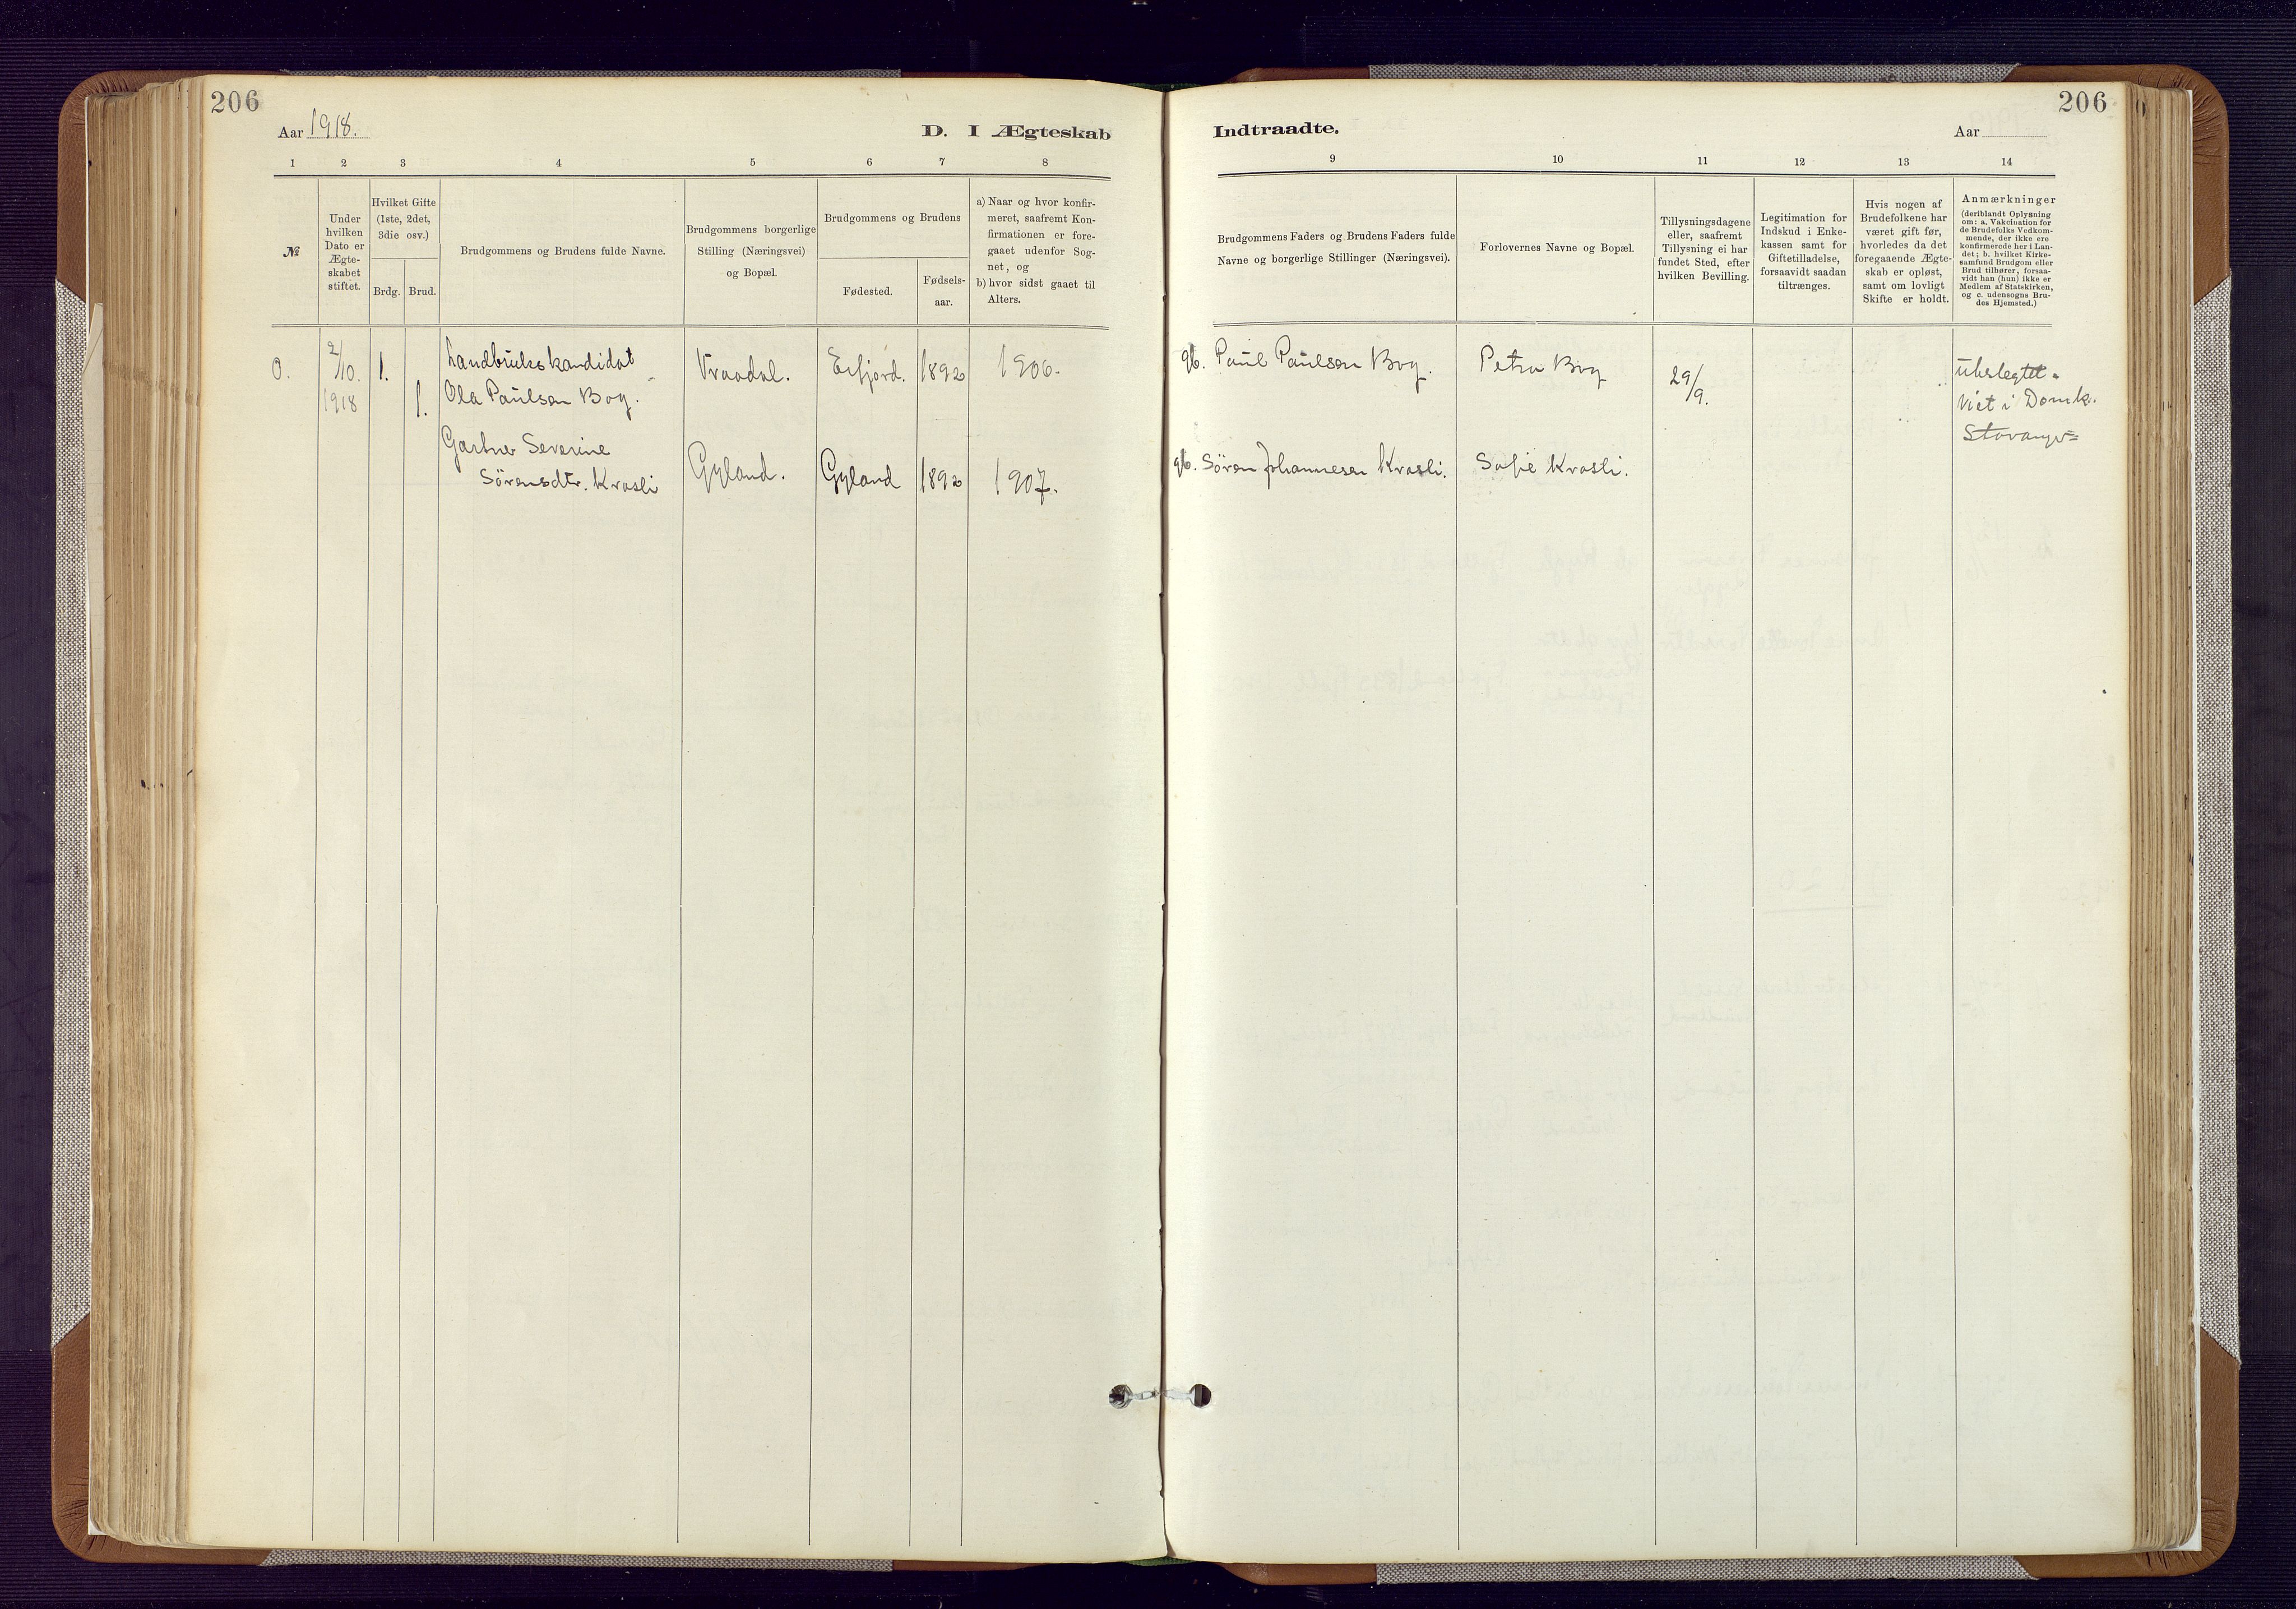 206
Aar 1918.
D. I Ægteskab
1 2 3 4 5 6 7 8
№
Under
hvilken
Dato er
Ægte-
skabet
stiftet.
Hvilket Gifte
(1ste, 2det,
3die osv.)
Brdg. Brud.
Brudgommens og Brudens fulde Navne.
Brudgommens borgerlige
Stilling (Næringsvei)
og Bopæl.
Brudgommens og Brudens
Fødested.
Fødsels-
aar.
a) Naar og hvor konfir-
meret, saafremt Kon-
firmationen er fore-
gaaet udenfor Sog-
net, og
b) hvor sidst gaaet til
Alters.
0. 2/10. 1. Landbrukskandidat Vraadal. Erfjord. 1892 1906.
1918 1. Ola Paulsen Bog.
Gartner Severine
Sörensdtr. Krosli Gyland. Gyland 1892 1907.
206
Indtraadte.
Aar
9 10 11 12 13 14
Brudgommens Faders og Brudens Faders fulde
Navne og borgerlige Stillinger (Næringsvei).
Forlovernes Navne og Bopæl.
Tillysningsdagene
eller, saafremt
Tillysning ei har
fundet Sted, efter
hvilken Bevilling.
Legitimation for
Indskud i Enke-
kassen samt for
Giftetilladelse,
forsaavidt saadan
tiltrænges.
Hvis nogen af
Brudefolkene har
været gift før,
hvorledes da det
foregaaende Ægte-
skab er opløst,
samt om lovligt
Skifte er holdt.
Anmærkninger
(deriblandt Oplysning
om: a. Vakcination for
de Brudefolks Vedkom-
mende, der ikke ere
konfirmerede her i Lan-
det; b. hvilket Kirke-
samfund Brudgom eller
Brud tilhører, forsaa-
vidt han (hun) ikke er
Medlem af Statskirken,
og c. udensogns Bru-
des Hjemsted.)
gb. Paul Paulsen Bog. Petra Bog 29/9. ubeslegtet.
Viet i Domk.
Stavanger
gb. Sören Johannesen Krosli. Sofie Krosli.